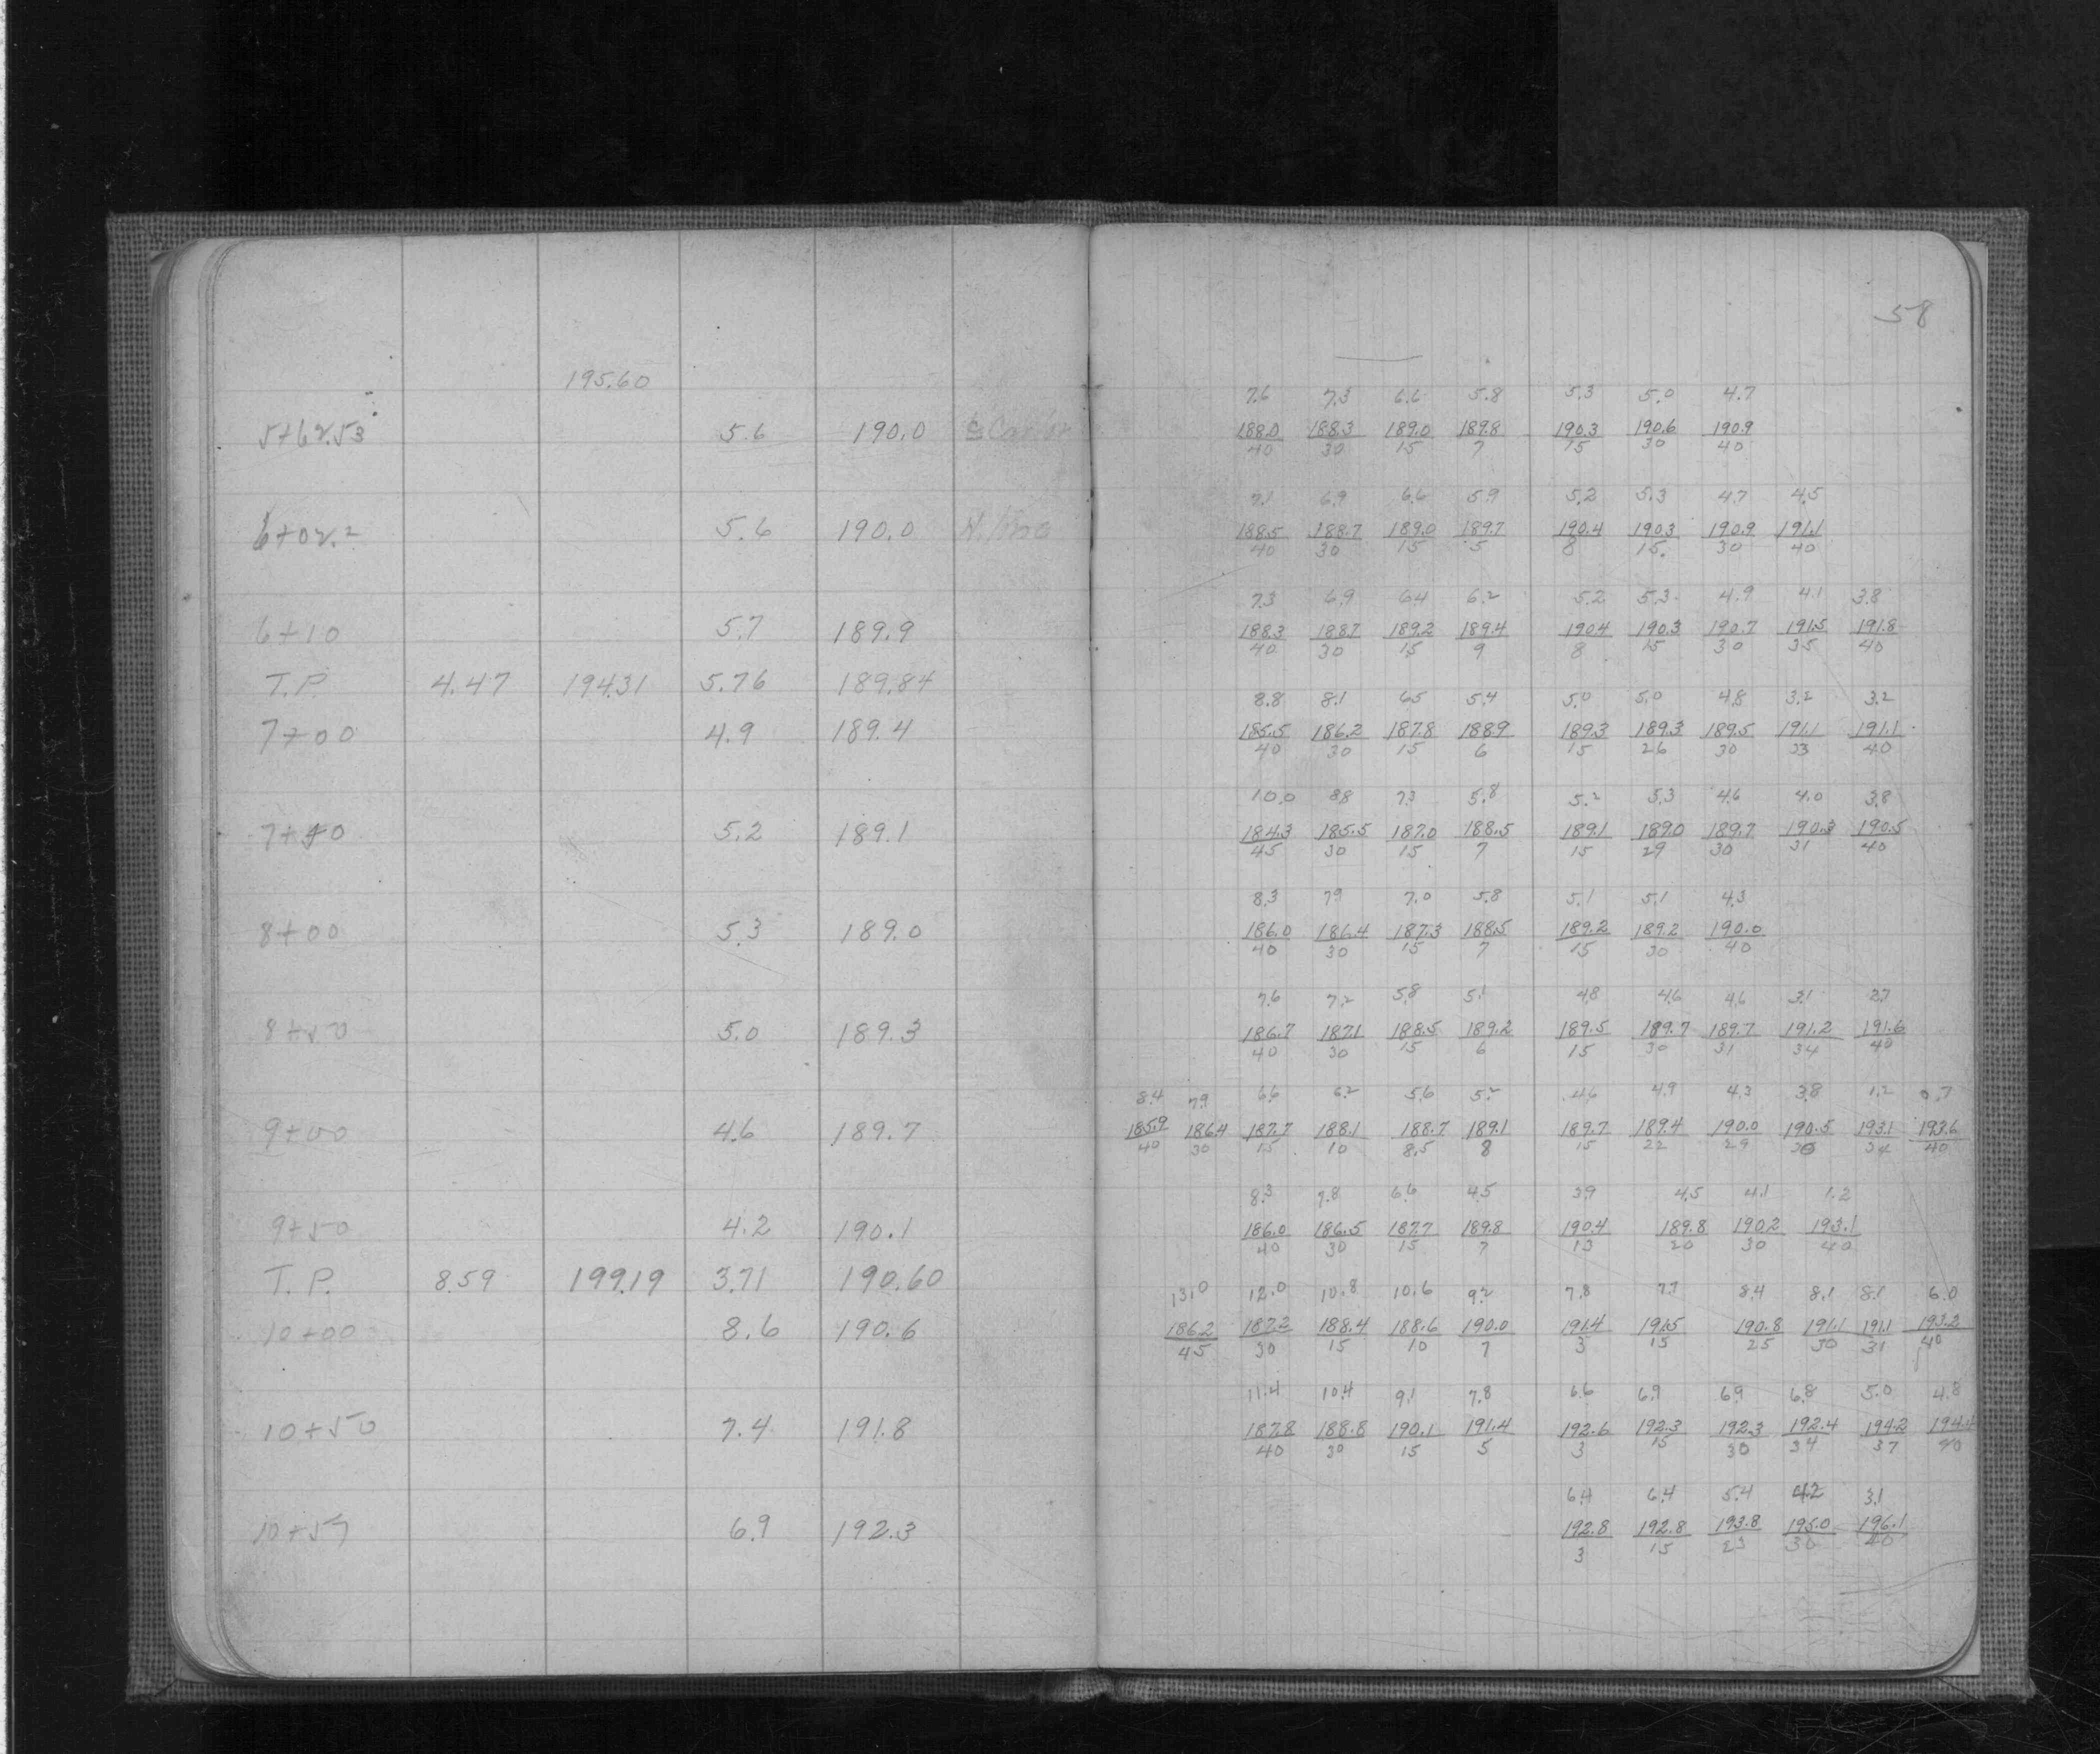 58
195.60
5+62.53 5.6 190.0
6+02.2 5.6 190.0
6+10 5.7 189.9
T.P 4.47 194.31 5.76 189.84
7+00 4.9 189.4
7+40 5.2 189.1
8+00 5.3 189.0
8+50 5.0 189.3
9+00 4.6 189.7
9+50 4.2 190.1
T.P. 8.59 199.19 3.71 190.60
10+00 8.6 190.6
10+50 7.4 191.8
10+57 6.9 192.3
7.6 7.3 6.6 5.8 5.3 5.0 4.7
188.0 188.3 189.0 189.8 190.3 190.6 190.9
40 30 15 7 15 30 40
7.1 6.9 6.6 5.9 5.2 5.3 4.7 4.5
188.5 188.7 189.0 189.7 190.4 190.3 190.9 191.1
40 30 15 5 8 15 30 40
7.3 6.9 6.4 6.2 5.2 5.3 4.9 4.1 3.8
188.3 188.7 189.2 189.4 190.4 190.3 190.7 191.5 191.8
40 30 15 9 8 15 30 35 40
8.8 8.1 6.5 5.4 5.0 5.0 4.8 3.2 3.2
185.5 186.2 187.8 188.9 189.3 189.3 189.5 191.1 191.1
40 30 15 6 15 26 30 33 40
10.0 8.8 7.3 5.8 5.2 5.3 4.6 4.0 3.8
184.3 185.5 187.0 188.5 189.1 189.0 189.7 190.3 190.5
45 30 15 7 15 29 30 31 40
8.3 7.9 7.0 5.8 5.1 5.1 4.3
186.0 186.4 187.3 188.5 189.2 189.2 190.0
40 30 15 7 15 30 40
7.6 7.2 5.8 5.1 4.8 4.6 4.6 3.1 2.7
186.7 187.1 188.5 189.2 189.5 189.7 189.7 191.2 191.6
40 30 15 6 15 30 31 34 40
8.4 7.9 6.6 6.2 5.6 5.2 4.6 4.9 4.3 3.8 1.2 0.7
185.9 186.4 187.7 188.1 188.7 189.1 189.7 189.4 190.0 190.5 193.1 193.6
40 30 15 10 8.5 8 15 22 29 30 34 40
8.3 7.8 6.6 4.5 3.9 4.5 4.1 1.2
186.0 186.5 187.7 189.8 190.4 189.8 190.2 193.1
40 30 15 7 13 20 30 40
13.0 12.0 10.8 10.6 9.2 7.8 7.7 8.4 8.1 8.1 6.0
186.2 187.2 188.4 188.6 190.0 191.4 191.5 190.8 191.1 191.1 193.2
45 30 15 10 7 3 15 25 30 31 40
11.4 10.4 9.1 7.8 6.6 6.9 6.9 6.8 5.0 4.8
187.8 188.8 190.1 191.4 192.6 192.3 192.3 192.4 194.2 194.4
40 30 15 5 3 15 30 34 37 40
6.4 6.4 5.4 4.2 3.1
192.8 192.8 193.8 195.0 196.1
3 15 23 30 40